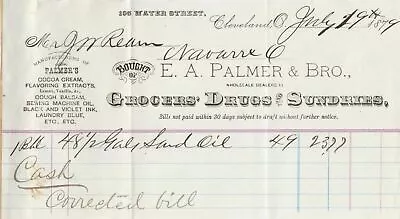 136 WATER STREET,
Cleveland, O July 19th 1879
Mr J W Ream
Navarre O
BOUGHT OF
E. A. PALMER & BRO.,
WHOLESALE DEALERS IN
GROCERS' DRUGS AND SUNDRIES,
Bills not paid within 30 days subject to draft without further notice.
MANUFACTURERS OF
PALMER'S
COCOA CREAM,
FLAVORING EXTRACTS,
Lemon, Vanilla, &c.
COUGH BALSAM,
SEWING MACHINE OIL,
BLACK AND VIOLET INK,
LAUNDRY BLUE,
ETC., ETC.
1 Bbl 48 1/2 Gals Oil 49 23 77
Cash
Corrected bill